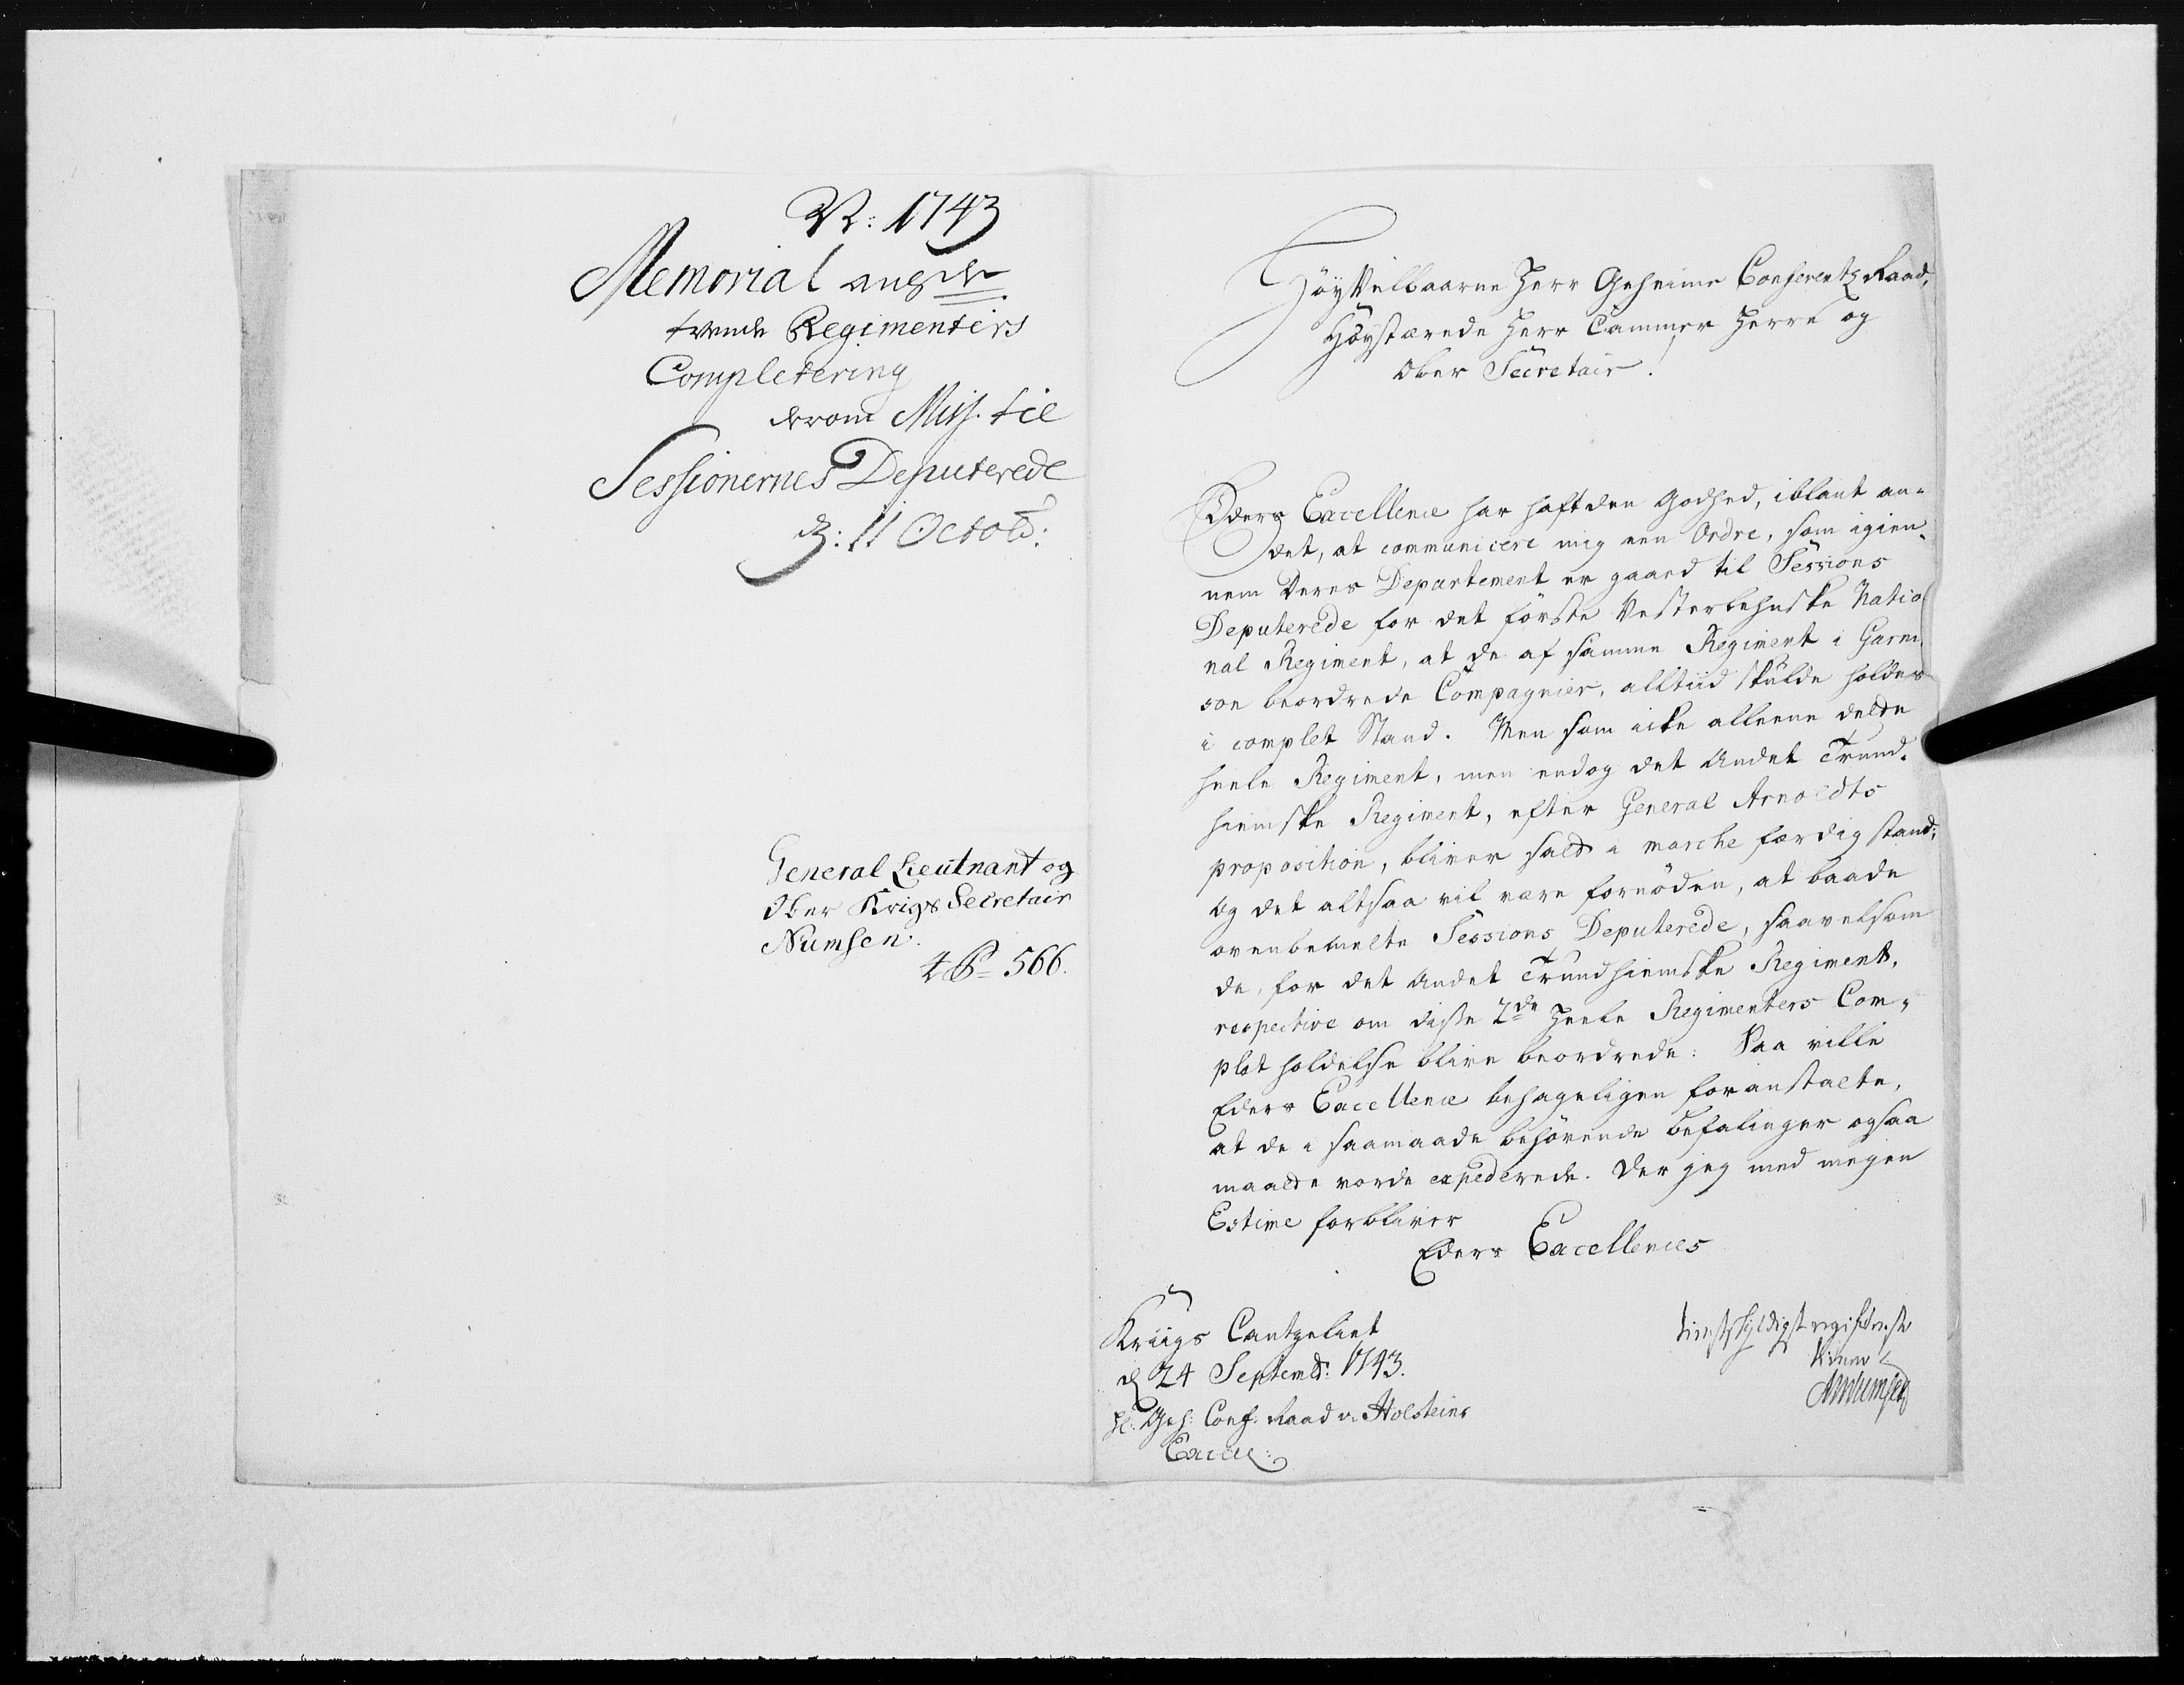 N: 1743
Memorial ang:de
tvende Regimenters
Completering
derom Miss. til
Sessionernes Deputerede
d: 11 Octob:
General Lieutnant og
Ober Krigs Secretair
Numsen.
566.
HöyVelbaarne Herr Geheime Conferentz Raad,
Höystærede Herr Cammer Herre og
Ober Secretair!
Eders Excellence har haft den Godhed, iblant an-
det, at communicere mig een Ordre, som igien-
nem Deres Departement er gaaed til Sessions
Deputerede for det förste Vesterlehnske Natio
nal Regiment, at de af samme Regiment i Garni
son beordrede Compagnier, alltiid skulde holdes
i complet Stand. Men som icke alleene dette
heele Regiment, men endog det Andet Trund-
hiemske Regiment, efter General Arnoldts
proposition, bliver sald i marche færdig stand;
Og det altsaa vil være fornöden, at baade
ovenbemelte Sessions Deputerede, saavelsom
de, for det Andet Trundhiemske Regiment,
respective om disse 2de heele Regimenters Com-
plet holdelse blive beordrede: Saa ville
Eders Excellence behageligen foranstalte,
at de i saamaade behörende befalinger ogsaa
maatte vorde expederede. Der jeg med megen
Estime forbliver
Eders Excellences
Kriigs Cantzeliet
d 24 Septembr: 1743.
tienstskyldigst
tiener
Numsen
Hr: Geh: Conf: Raad v. Holsteins
Excell: